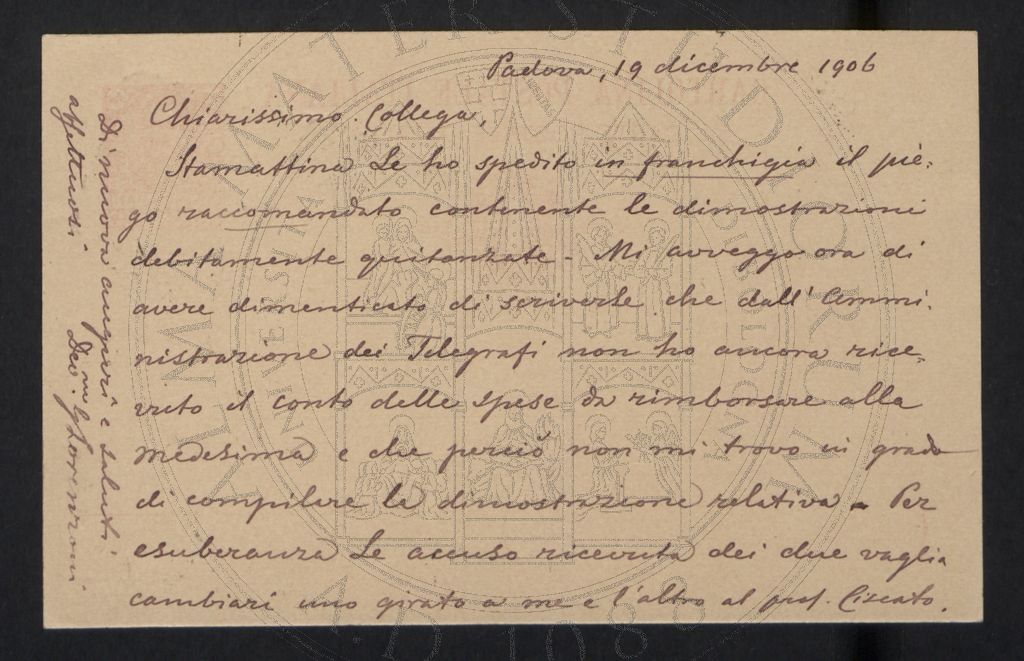 Padova, 19 dicembre 1906
Chiarissimo Collega,
Stamattina Le ho spedito in franchigia il piè-
go raccomandato continente le dimostrazioni
debitamente quitanzate - Mi avveggo ora di
avere dimenticato di scriverle che dall'Ammi-
nistrazione dei Telegrafi non ho ancora rice-
vuto il conto delle spese da rimborsare alla
medesima e che perciò non mi trovo in grado
di compilare la dimostrazione relativa - Per
esuberanza Le accuso ricevuta dei due vaglia
cambiari uno girato a me e l'altro al prof. Ciscato.
Di nuovo auguri e saluti
affettuosi Dev. G Lorenzoni
ALMA MATER STUDIORUM
A.D. 1088